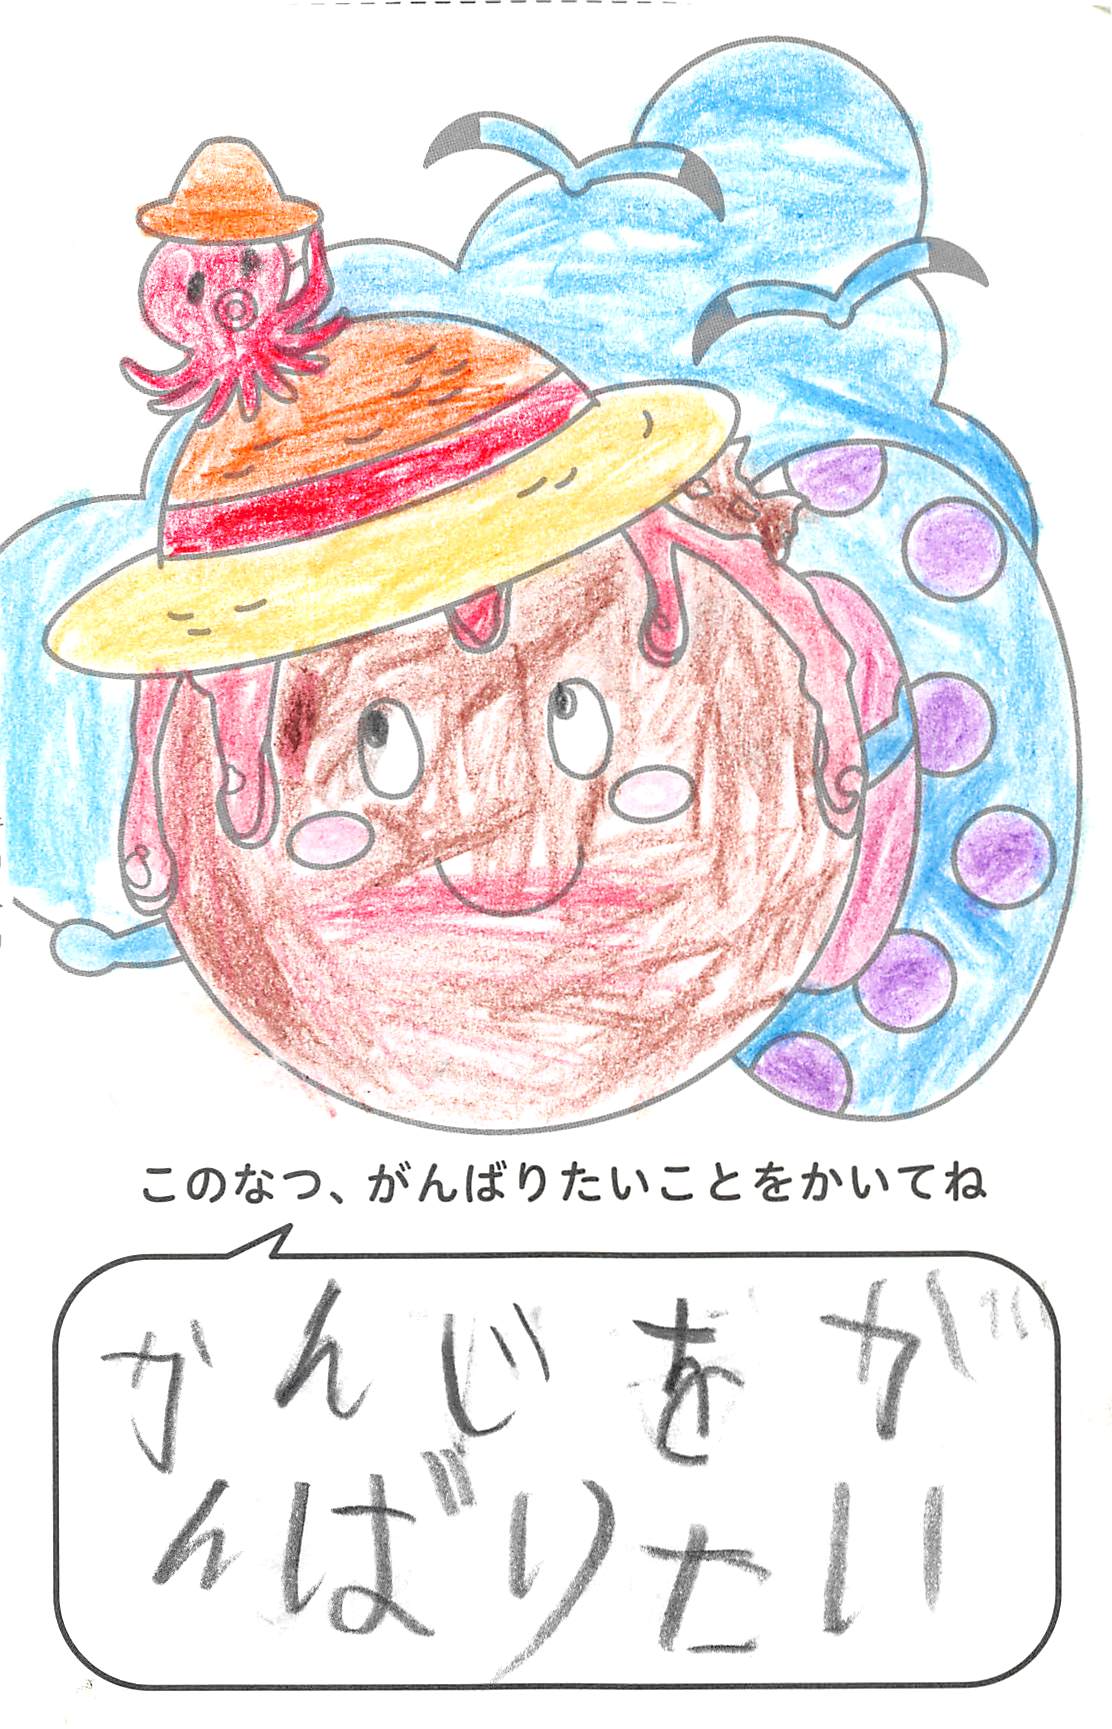 このなつ、がんばりたいことをかいてね
かんじをが
んばりたい